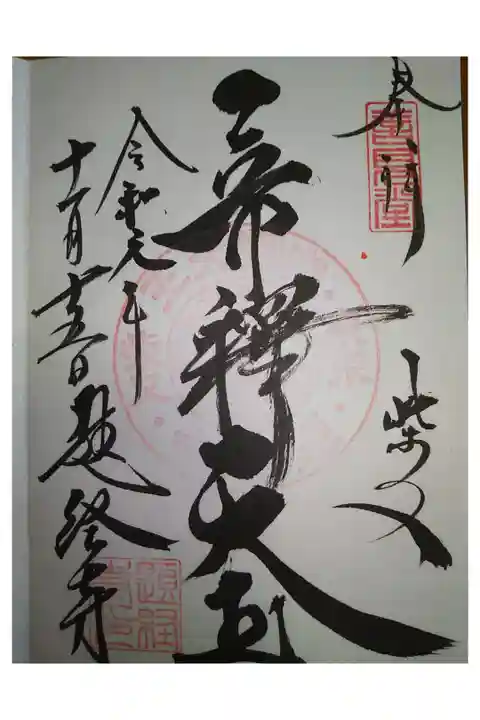 奉拝
柴又
帝釋天王
令和元年
十一月十五日 題経寺